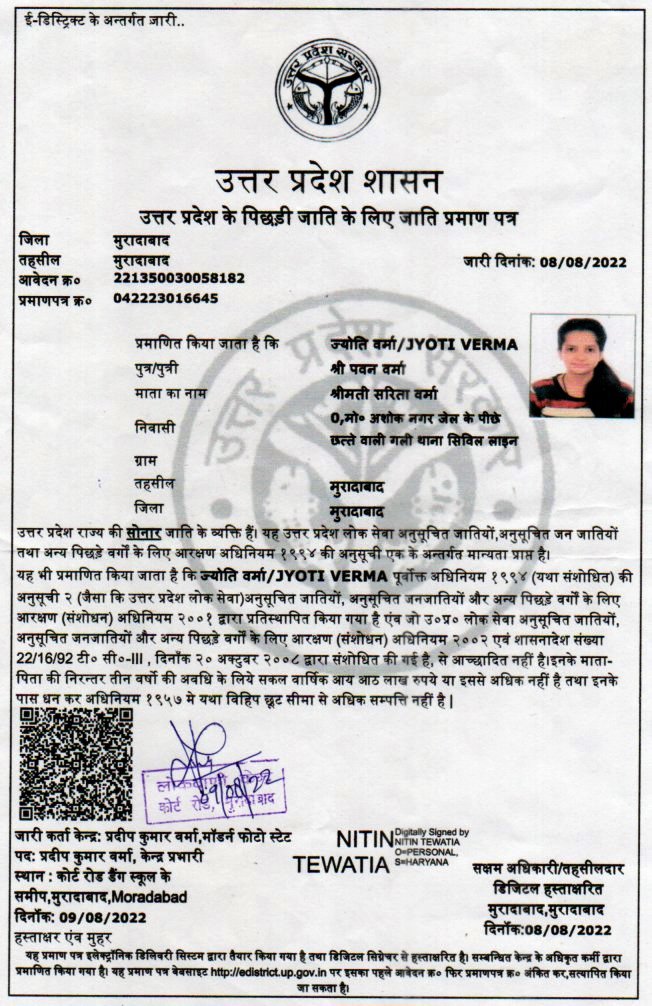 ई-डिस्ट्रिक्ट के अन्तर्गत जारी..
उत्तर प्रदेश सरकार
उत्तर प्रदेश शासन
उत्तर प्रदेश के पिछड़ी जाति के लिए जाति प्रमाण पत्र
जिला मुरादाबाद
तहसील मुरादाबाद जारी दिनांक: 08/08/2022
आवेदन क्र० 221350030058182
प्रमाणपत्र क्र० 042223016645
प्रमाणित किया जाता है कि ज्योति वर्मा/JYOTI VERMA
पुत्र/पुत्री श्री पवन वर्मा
माता का नाम श्रीमती सरिता वर्मा
निवासी 0,मो० अशोक नगर जेल के पीछे
छत्ते वाली गली थाना सिविल लाइन
ग्राम
तहसील मुरादाबाद
जिला मुरादाबाद
उत्तर प्रदेश राज्य की सोनार जाति के व्यक्ति हैं। यह उत्तर प्रदेश लोक सेवा अनुसूचित जातियों,अनुसूचित जन जातियों
तथा अन्य पिछड़े वर्गों के लिए आरक्षण अधिनियम १९९४ की अनुसूची एक के अन्तर्गत मान्यता प्राप्त है।
यह भी प्रमाणित किया जाता है कि ज्योति वर्मा/JYOTI VERMA पूर्वोक्त अधिनियम १९९४ (यथा संशोधित) की
अनुसूची २ (जैसा कि उत्तर प्रदेश लोक सेवा)अनुसूचित जातियों, अनुसूचित जनजातियों और अन्य पिछड़े वर्गों के लिए
आरक्षण (संशोधन) अधिनियम २००१ द्वारा प्रतिस्थापित किया गया है एंव जो उ०प्र० लोक सेवा अनुसूचित जातियों,
अनुसूचित जनजातियों और अन्य पिछड़े वर्गों के लिए आरक्षण (संशोधन) अधिनियम २००२ एवं शासनादेश संख्या
22/16/92 टी० सी०-III , दिनाँक २० अक्टुबर २००८ द्वारा संशोधित की गई है, से आच्छादित नहीं है।इनके माता-
पिता की निरन्तर तीन वर्षो की अवधि के लिये सकल वार्षिक आय आठ लाख रुपये या इससे अधिक नहीं है तथा इनके
पास धन कर अधिनियम १९५७ मे यथा विहिप छूट सीमा से अधिक सम्पत्ति नहीं है |
कोर्ट रोड, मुरादाबाद
09/08/22
जारी कर्ता केन्द्र: प्रदीप कुमार वर्मा,मॉडर्न फोटो स्टेट
पद: प्रदीप कुमार वर्मा, केन्द्र प्रभारी
स्थान : कोर्ट रोड डैंग स्कूल के
समीप,मुरादाबाद,Moradabad
दिनाँक: 09/08/2022
हस्ताक्षर एंव मुहर
NITIN
TEWATIA
Digitally Signed by
NITIN TEWATIA
O=PERSONAL,
S=HARYANA
सक्षम अधिकारी/तहसीलदार
डिजिटल हस्ताक्षरित
मुरादाबाद,मुरादाबाद
दिनाँक:08/08/2022
यह प्रमाण पत्र इलेक्ट्रॉनिक डिलिवरी सिस्टम द्वारा तैयार किया गया है तथा डिजिटल सिग्नेचर से हस्ताक्षरित है। सम्बन्धित केन्द्र के अधिकृत कर्मी द्वारा
प्रमाणित किया गया है। यह प्रमाण पत्र वेबसाइट http://edistrict.up.gov.in पर इसका पहले आवेदन क्र० फिर प्रमाणपत्र क्र० अंकित कर,सत्यापित किया
जा सकता है।